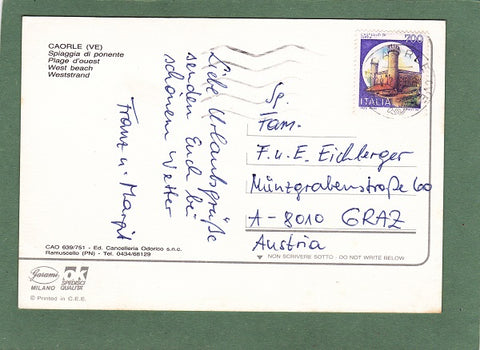 CAORLE (VE)
Spiaggia di ponente
Plage d'ouest
West beach
Weststrand
Liebe Urlaubsgrüße
senden Euch bei
schönem Wetter
Franz u. Margit
700
ITALIA
Fam.
F. u. E. Eichberger
Münzgrabenstraße 60
A-8010 GRAZ
Austria
CAO 639/751 - Ed. Cancelleria Odorico s.n.c.
Ramuscello (PN) - Tel. 0434/68129
NON SCRIVERE SOTTO - DO NOT WRITE BELOW
Garami
MILANO
OK
SPEDISCI
QUALITÀ
© Printed in C.E.E.